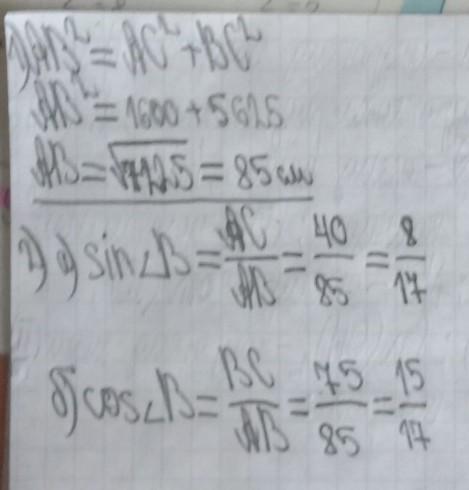 1) AB² = AC² + BC²
AB² = 1600 + 5625
AB = √7225 = 85 см
2) а) sin∠B = AC/AB = 40/85 = 8/17
б) cos∠B = BC/AB = 75/85 = 15/17